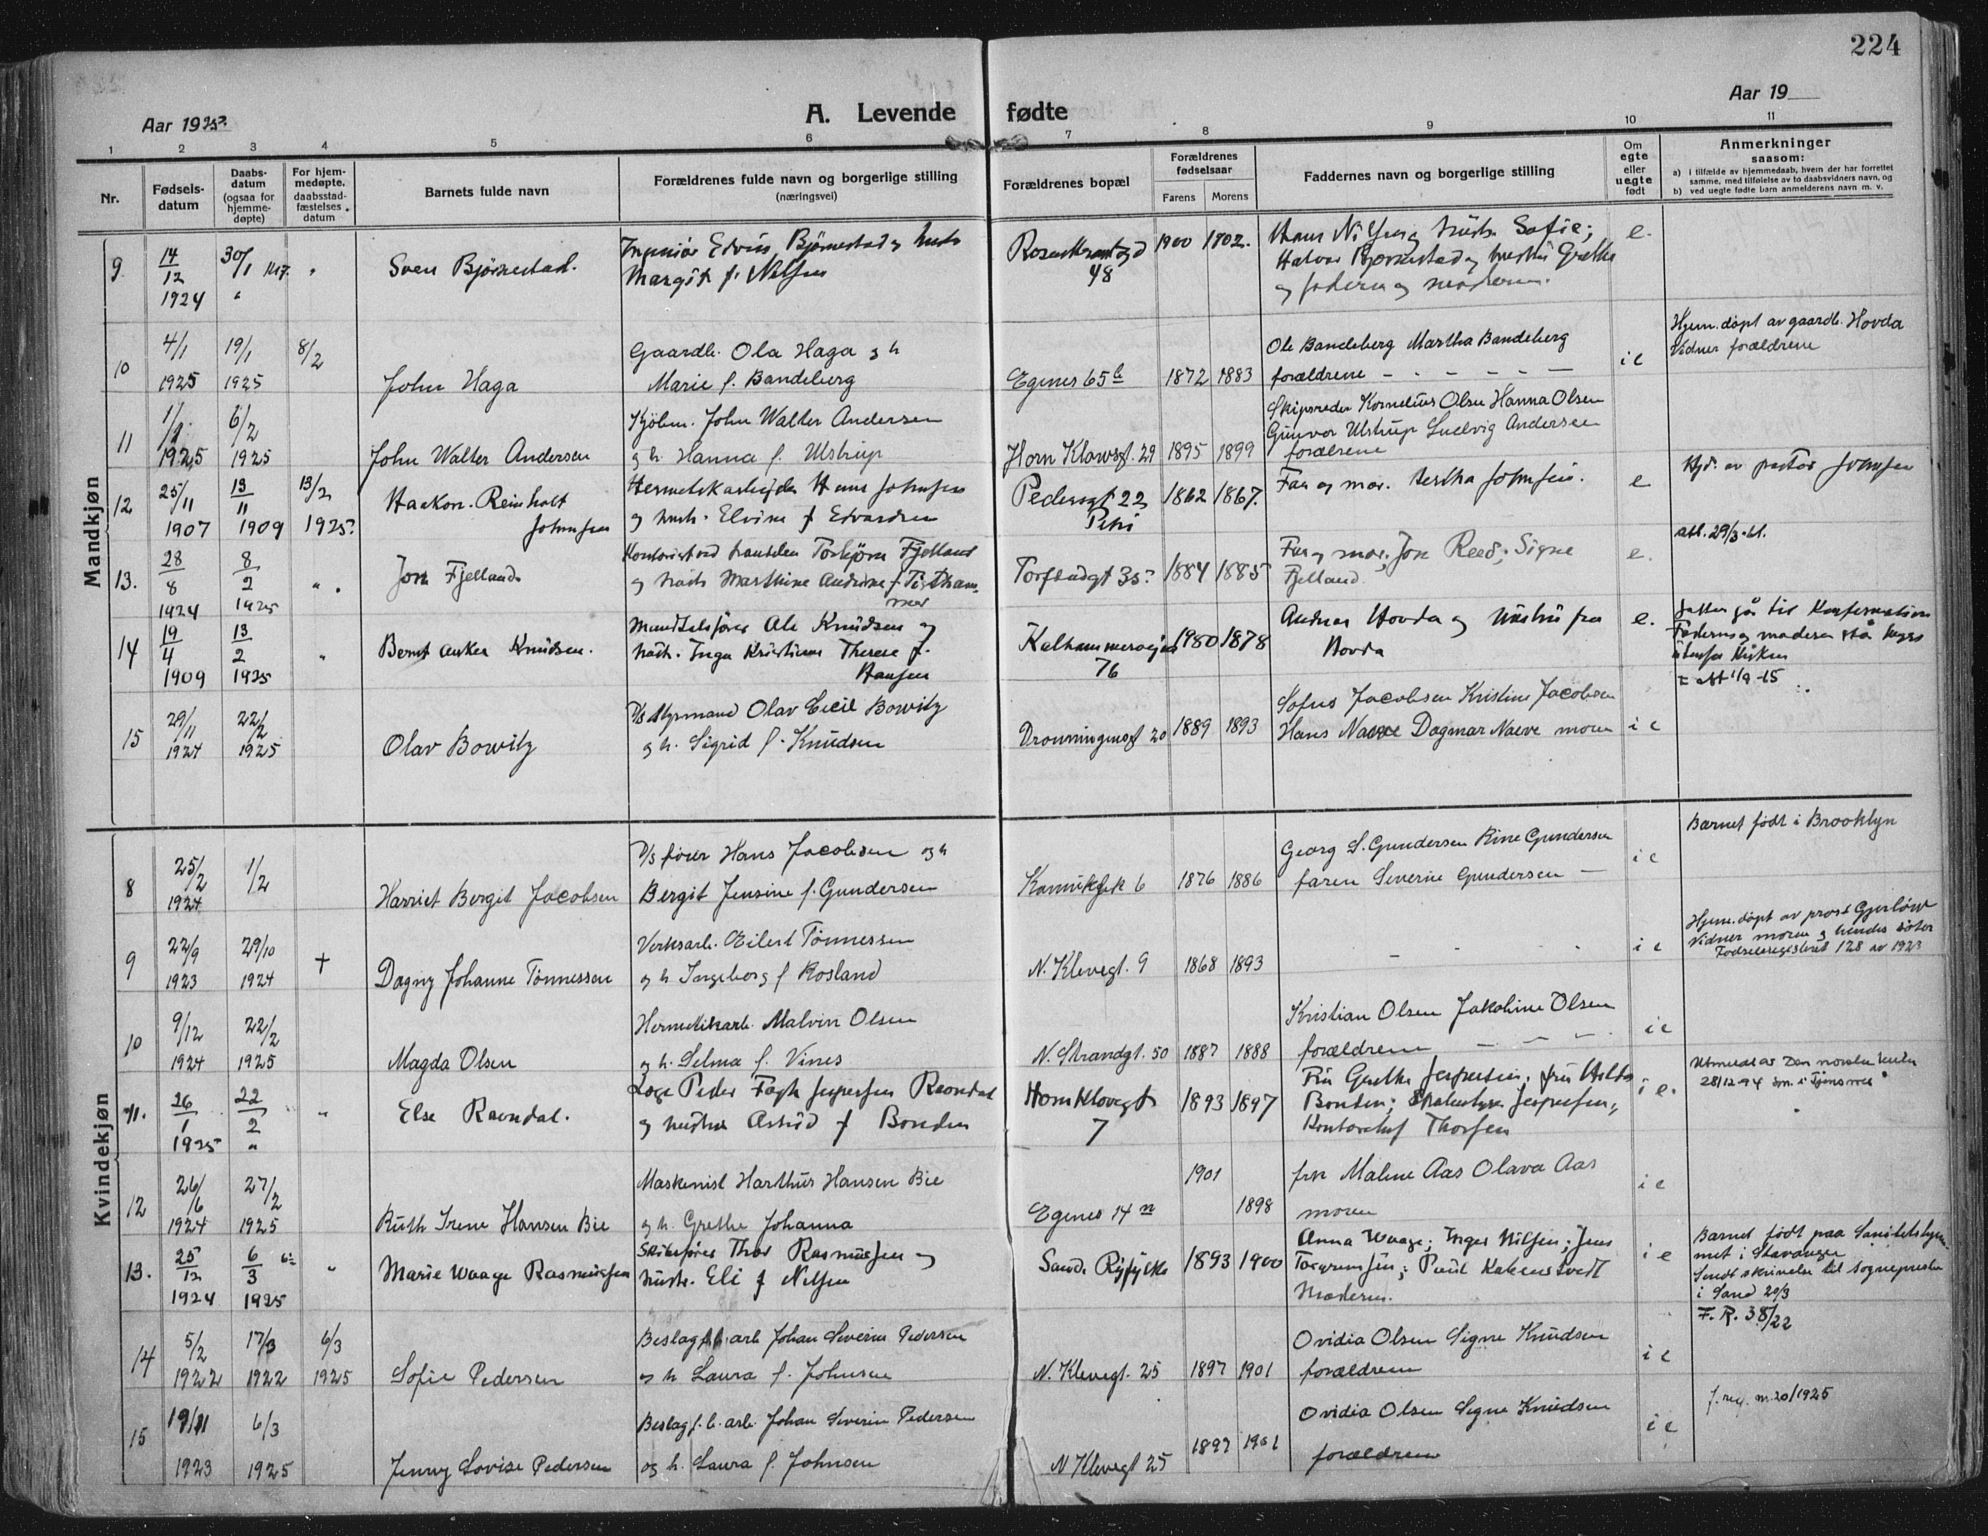 224
Aar 1925.
A. Levende fødte
Aar 19
1 2 3 4 5 6 7 8 9 10 11
Nr.
Fødsels-
datum
Daabs-
datum
(ogsaa for
hjemme-
døpte)
For hjem-
medøpte.
daabsstad-
fæstelses
datum
Barnets fulde navn
Forældrenes fulde navn og borgerlige stilling
(næringsvei)
Forældrenes bopæl
Forældrenes
fødselsaar
Farens Morens
Faddernes navn og borgerlige stilling
Om
egte
eller
uegte
født
Anmerkninger
saasom:
a) i tilfælde av hjemmedaab, hvem der har forrettet
samme, med tilføielse av to daabsvidners navn, og
b) ved uegte fødte barn anmelderens navn m. v.
Mandkjøn
9 14/12 1924 30/1 " Sven Bjørnestad.
Ingeniør Edvin Bjørnestad og hustr
Margit f. Nilsen
48 1900 1902.
Hans Nilsen og hustr. Sofie;
Halvor Bjørnestad og hustru Grethe
og faderen og moderen.
e.
10 4/1 1925 19/1 1925 8/2 John Haga
Gaardb. Ola Haga og h
Marie f. Bandeberg
Egenes 65 b 1872 1883
Ole Bandeberg Martha Bandeberg
forældrene - - - - - -
i e
Hjem. døpt av gaardb. Hovda
Vidner forældrene
11 1/1 1925 6/2 1925 John Walter Andersen
Kjøbm. John Walter Andersen
og h. Hanna f. Ulstrup
Horn Klowsgt. 29 1895 1899
Skipsreder Kornelius Olsen Hanna Olsen
Gunvor Ulstrup Ludvig Andersen
forældrene
12 25/11 1907 13/11 1909 13/2 1925. Haakon Reinholt
Johnsen
Hermetikarbeider Hans Johnsen
og hustr. Elvine f Edvardsen
Pedersgt 22
Petri
1862 1867.
Far og mor. Bertha Johnsen.
e
Hjd. av pastor Johnsen
13. 28/8 1924 8/2 1925 " . Jon Fjelland
og hustr Marthine Andrine f Tistham-
mer
Torfæusgt 35. 1884 1885
Far og mor. Jon Reed; Signe
Fjelland.
e.
att. 29/3-41.
14 19/4 1909 13/2 1925 " Bernt Anker Knudsen.
Ole Knudsen og
hustr. Inga Kristiane Therese f.
Hansen
Kalhammerveien
76
1980 1878
Andreas Hovda og hustru fra
Hovda
e.
går til Konfirmation
Faderen og moderen står
utenfor Kirken
15 29/11 1924 22/2 1925 Olav Bowitz
D/s styrmand Olav Cecil Bowitz
og h. Sigrid f. Knudsen
Dronningensgt 20 1889 1893
Sofus Jacobsen Kristine Jacobsen
Hans Naeve Dagmar Naeve moren
i e
Kvindekjøn
8 25/2 1924 1/2 Harriet Bergit Jacobsen
D/s fører Hans Jacobsen og h
Bergit Jensine f. Gundersen
Kannikgt. 6 1876 1886
Georg S. Gundersen Rine Gundersen
faren Severine Gundersen -
i e
Barnet født i Brooklyn
9 22/9 1923 29/10 1924 + Dagny Johanne Tönnessen
Verksarb. Eilert Tönnessen
og h. Ingeborg f Rosland
N. Klevegt. 9 1868 1893
- - -
i e
Hjem. døpt av prost Gjerløw
Vidner moren og hendes søster
Fødselsregisteret 128 av 1923
10 9/12 1924 22/2 1925 Magda Olsen
Hermetikarb. Malvin Olsen
og h. Selma f. Vines
N. Strandgt. 50 1887 1888
Kristian Olsen Jakobine Olsen
forældrene - - -
i e
11. 26/1 1925 22/2 " " Else Ravndal.
Læge Peder Fagh Jespersen Ravndal
og hustru Astrid f Bonden
Horn Klovegt
7
1893 1897
Fru Grethe Jespersen, fru Hilda
Bonden; Jespersen;
Kontorchef Thorsen
i e.
Utmeldt av Den norske kirke
28/12-94
12 26/6 1924 27/2 1925 Ruth Irene Hansen Bie
Maskinist Harthus Hansen Bie
og h. Grethe Johanna
Egenes 14 n 1901 1898
frk Malene Aas Olava Aas
moren
i e
13. 25/12 1924 6/3 1925 " Marie Waage Rasmussen
Skibsfører Thor Rasmussen og
hustr. Eli f Nilsen
Sande Ryfylke 1893 1900
Anna Waage; Inger Nilsen; Jens
Moderen.
i e
Barnet født paa Sanitetshjem-
met i Stavanger
Sendt skrivelse til sognepresten
i Sand 20/3
14 5/2 1922 17/3 1922 6/3 1925 Sofie Pedersen
Beslag f.b. arb Johan Severin Pedersen
og h Laura f. Johnsen
N. Klevegt. 25 1897 1901
Ovidia Olsen Signe Knudsen
forældrene
i e
F. R. 38/22
15 19/11 1923 6/3 1925 Jenny Lovise Pedersen
Beslag f.b. arb. Johan Severin Pedersen
og h. Laura f. Johnsen
N Klevegt 25 1897 1901
Ovidia Olsen Signe Knudsen
forældrene
i e
f. reg. nr. 20/1925